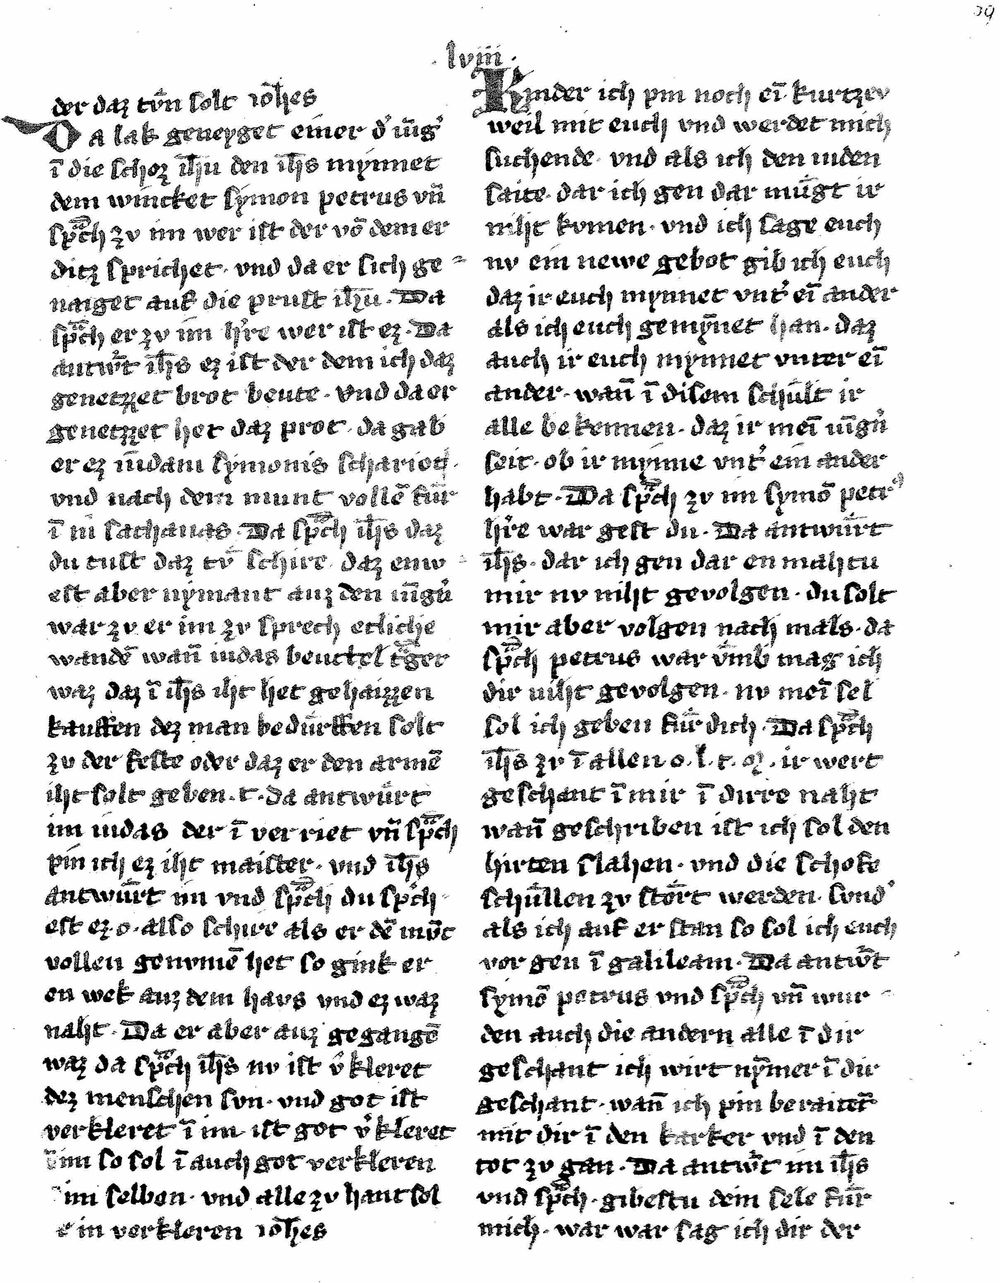 59
· lviii ·
der daz tvͦn solt ioh̅es
Da lak geneyget einer d' iu̅g'
i̅ die schoz ih̅u den ih̅s mynnet
dem wincket symon petrus vn̅
sp̅ch zv im wer ist der vo̅ dem er
ditz sprichet · vnd da er sich ge⸗
naiget auf die prust ih̅u · Da
sp̅ch er zv im h're wer ist ez · Da
antw̅t ih̅s ez ist der dem ich daz
genetzzet brot beute · vnd da er
genetzzet het daz prot · da gab
er ez iu̅dam symonis schariot
vnd nach dem munt volle̅ fuͤr
i̅ in sathanas · Da sp̅ch ih̅s daz
du tust daz tvͦ schire daz enw⸗
est aber nymant auz den iu̅g'n
war zv er im zv sprech etliche
wande̅ wan̅ iudas beuttel t̅ger
waz daz i̅ ih̅s iht het gehaizzen
kauffen dez man beduͤrffen solt
zv der feste oder daz er den arme̅
iht solt geben · t · da antwuͤrt
im iudas der i̅ verriet vn̅ sp̅ch
pin ich ez iht maister · vnd ih̅s
antwuͤrt im vnd sp̅ch du sp̅ch⸗
est ez · o · also schire als er de̅ muͦt
vollen genvme̅ het so gink er
en wek auz dem havs vnd ez waz
naht · Da er aber auz gegange̅
waz da sp̅ch ih̅s nv ist v'kleret
dez menschen svn · vnd got ist
verkleret i̅ im ist got v'kleret
i̅ im so sol i̅ auch got verkleren
im selben · vnd alle zv hant sol
e in verkleren ioh̅es
Kinder ich pin noch ei̅ kurtzev
weil mit euch vnd werdet mich
suchende · vnd als ich den iuden
saite · dar ich gen dar muͤgt ir
niht kvmen · vnd ich sage euch
nv ein newe gebot gib ich euch
daz ir euch mynnet vnt' ei̅ ander
als ich euch gemy̅net han · daz
auch ir euch mynnet vnter ei̅
ander · wan̅ i̅ disem schuͤlt ir
alle bekennen · daz ir mei̅ iu̅g'n
seit · ob ir mynne vnt' ein ander
habt · Da sp̅ch zv im symo̅ petr'
h're war gest du · Da antwuͤrt
ih̅s · dar ich gen dar en mahtu
mir nv niht gevolgen · du solt
mir aber volgen nach mals · da
sp̅ch petrus war v̅mb mag ich
dir niht gevolgen · nv mei̅ sel
sol ich geben fuͤr dich · Da sp̅ch
ih̅s zv i̅ allen · o · l · t · m · ir wert
geschant i̅ mir i̅ dirre naht
wan̅ geschriben ist ich sol den
hirten slahen · vnd die schofe
schuͤllen zv stoͤrt werden · svnd'
als ich auf er stan so sol ich euch
vor gen i̅ galileam · Da antw̅t
symo̅ petrus vnd sp̅ch vn̅ wur⸗
den auch die andern alle i̅ dir
geschant ich wirt ny̅mer i̅ dir
geschant · wan̅ ich pin beraitet
mit dir i̅ den karker vnd i̅ den
tot zv gan · Da antw̅t im ih̅s
vnd sp̅ch · gibestu dein sele fuͤr
mich · war war sag ich dir der